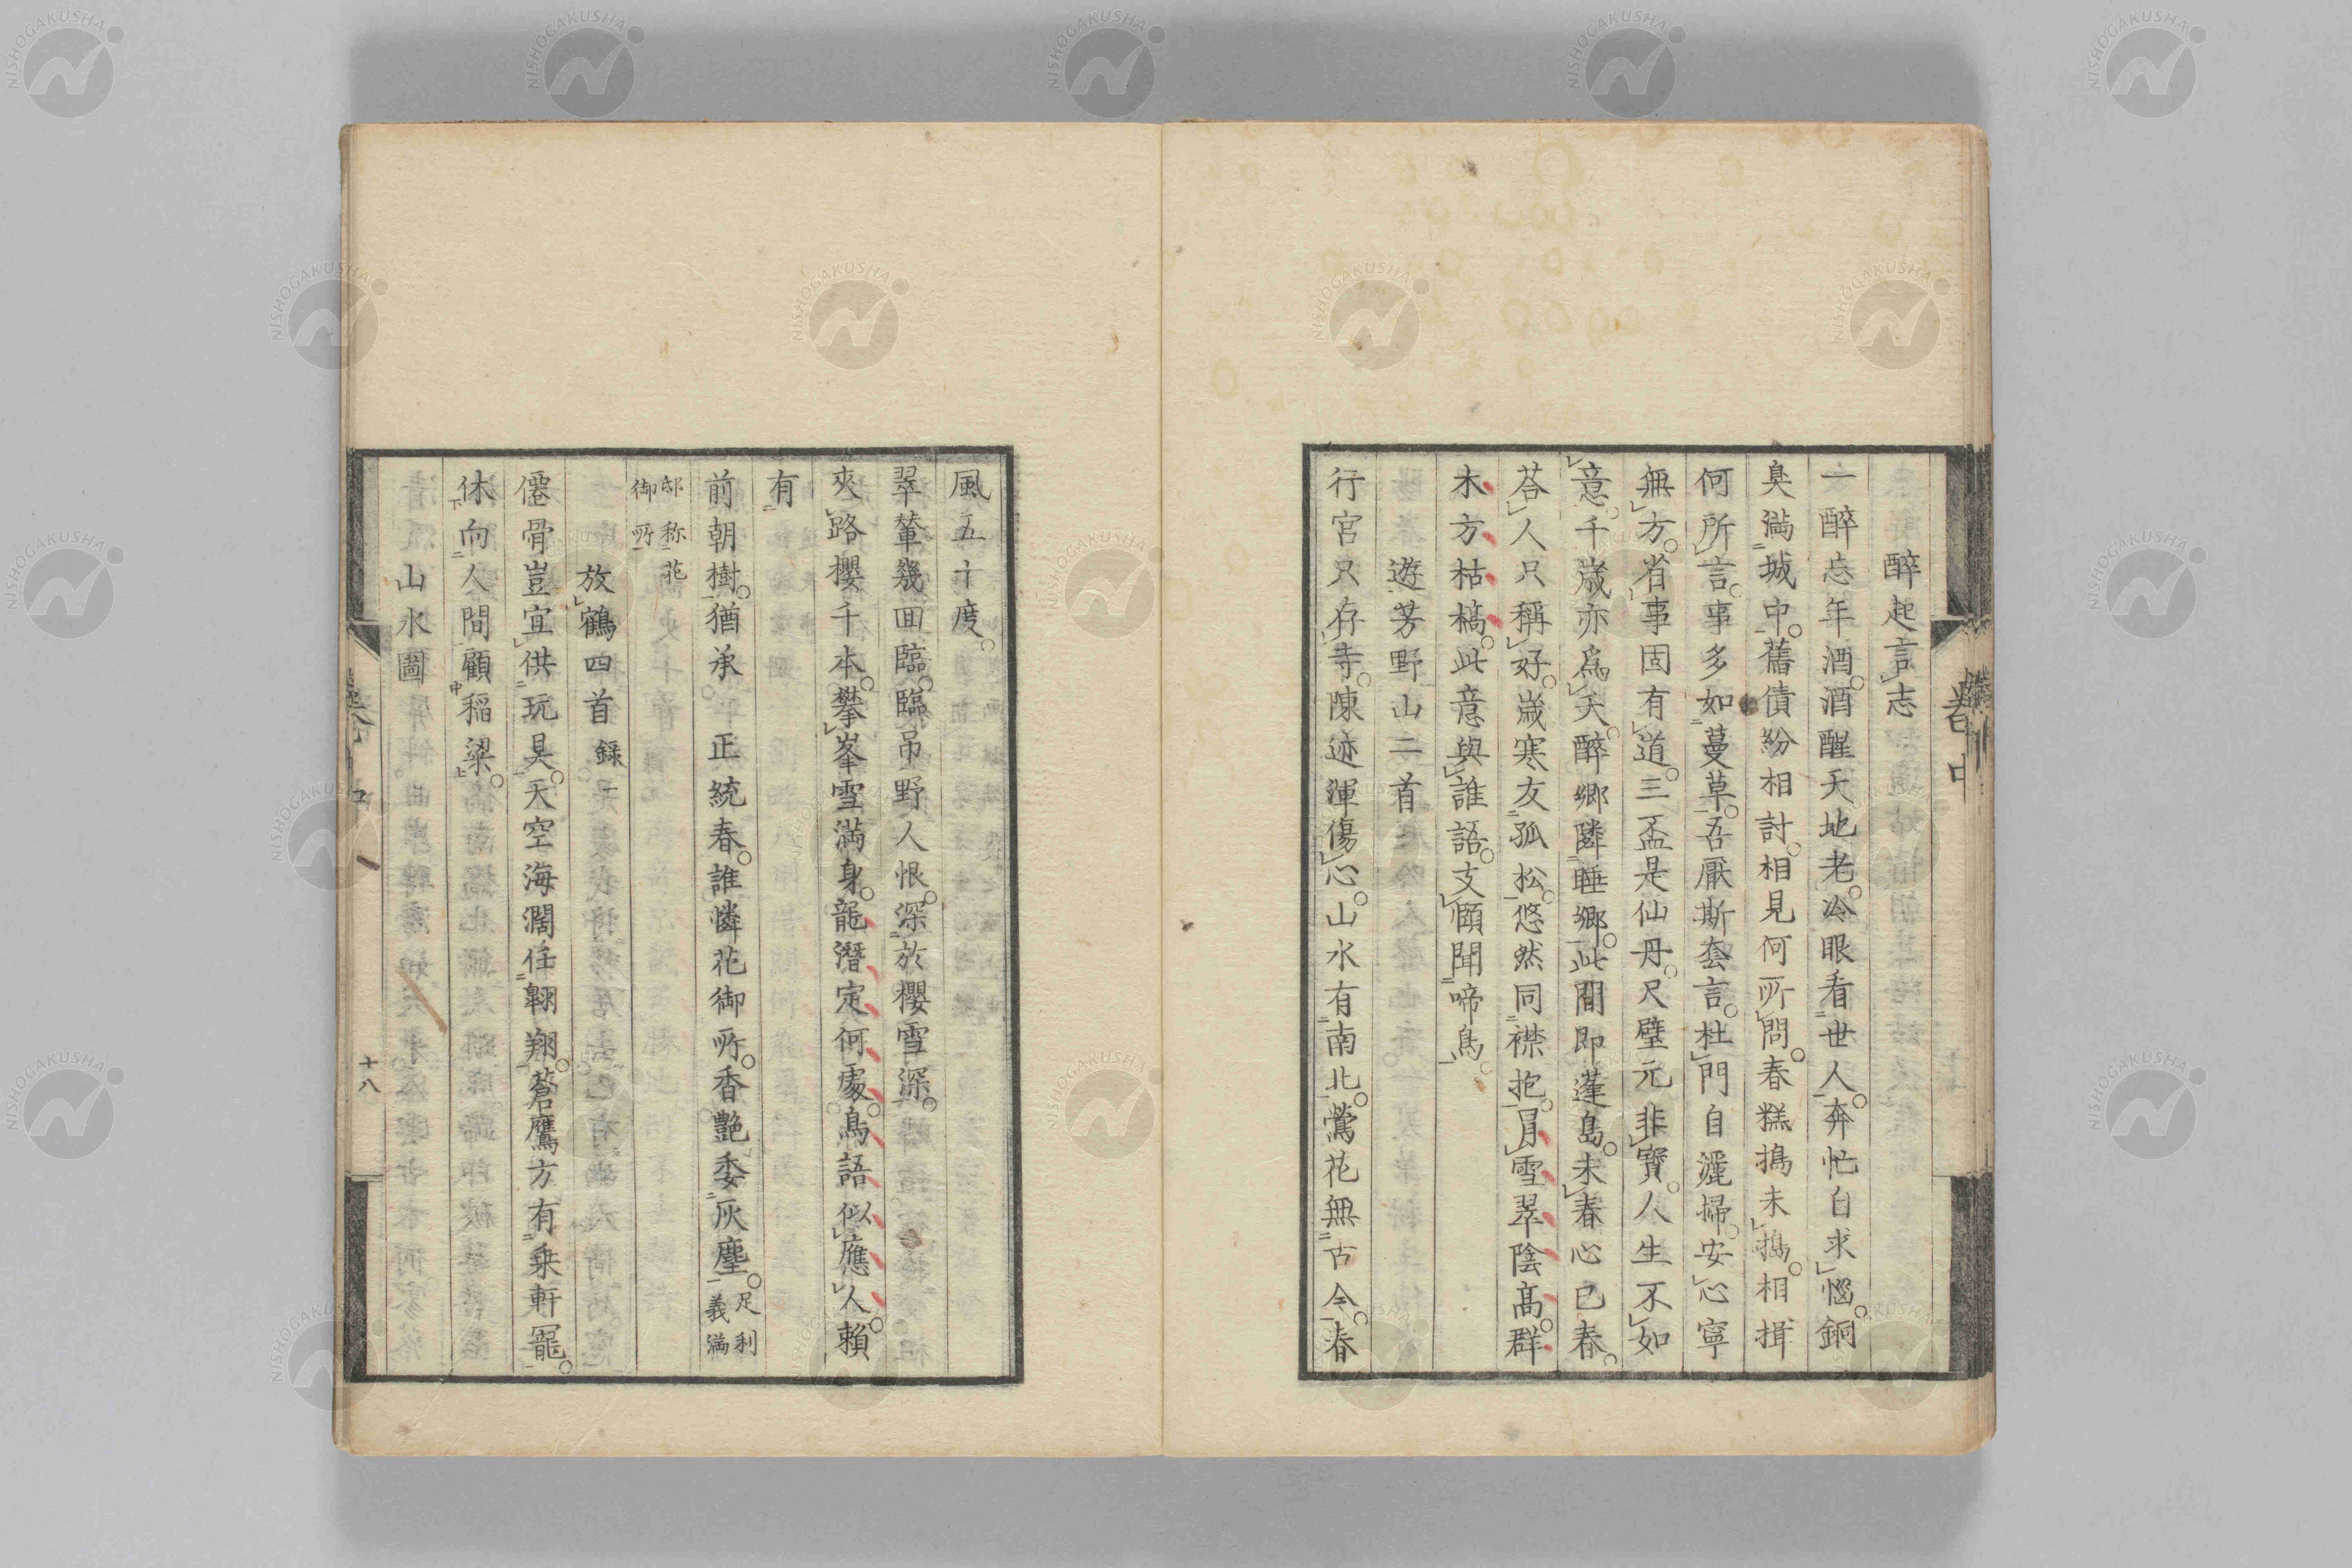 醉起言志
一醉忘年酒酒醒天地老冷眼看世人奔忙自求惱銅
臭滿城中舊債紛相討相見何所問春糕搗未搗相揖
何所言事多如蔓草吾厭斯套言杜門自灑掃安心寧
無方省事固有道三盃是仙丹尺璧元非寶人生不如
意千歲亦爲夭醉鄉隣睡鄉此間即蓬島未春心已春
荅人只稱好歲寒友孤松悠然同襟抱冐雪翠陰高群
木方枯槁此意與誰語支頤聞啼鳥
遊芳野山二首
行宮只存寺陳迹渾傷心山水有南北鶯花無古今春
風五十度
翠輦幾回臨臨吊野人恨深於櫻雪深
夾路櫻千本攀峯雪滿身龍潛定何處鳥語似應人賴
有
前朝樹猶承　正統春誰憐花御所香艷委灰塵足利義滿
邸称花御所
放鶴四首録二
僊骨豈宜供玩具天空海濶任翺翔蒼鷹方有乗軒寵
休向人間顧稲梁
山水圖
中
十八
NISHOGAKUSHA